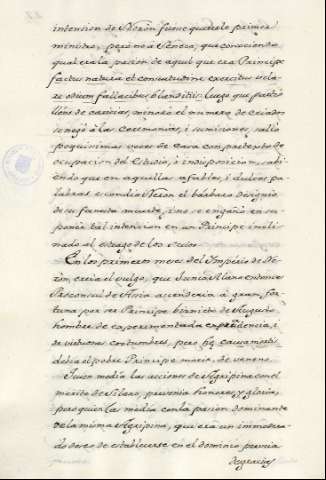 intension de Nerón fuese quererle primer
ministro, pero no a Séneca, que conociendo
qual era la pasion de aquel que era Principe
factus natura et consuetudine exercitus velare
odium fallacibus blanditiis: luego que partió
lleno de caricias, minoró el numero de criados
se negó a las ceremonias, i sumisiones, salió
poquisimas veces de casa con pretexto de
ocupacion del Estudio, o indisposicion, sabiendo
que en aquellas afables, i dulces palabras
escondia Neron el bárbaro designio
de su funesta muerte, i no se engañó en suponer
tal intencion en un Principe inclinado
al estrago de los suyos.
En los primeros meses del Imperio de Nerón,
creia el vulgo, que Junio Silano entonces
Proconsul de Asia ascenderia a gran fortuna
por ser Principe, biznieto de Augusto
hombre de experimentada prudencia, i
de virtuosas costumbres, pero
debia el pobre Principe morir, de veneno.
Quien media las acciones de Agripina con el
merito de Silano, prevenia honores, y glorias,
pero quien las media con la pasion dominante
de la misma Agripina, que era un inmoderado
deseo de establecerse en el dominio prevenia
desgracias